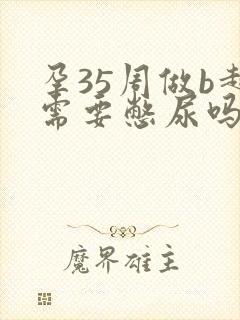 孕35周做b超
需要憋尿吗
魔界雄主